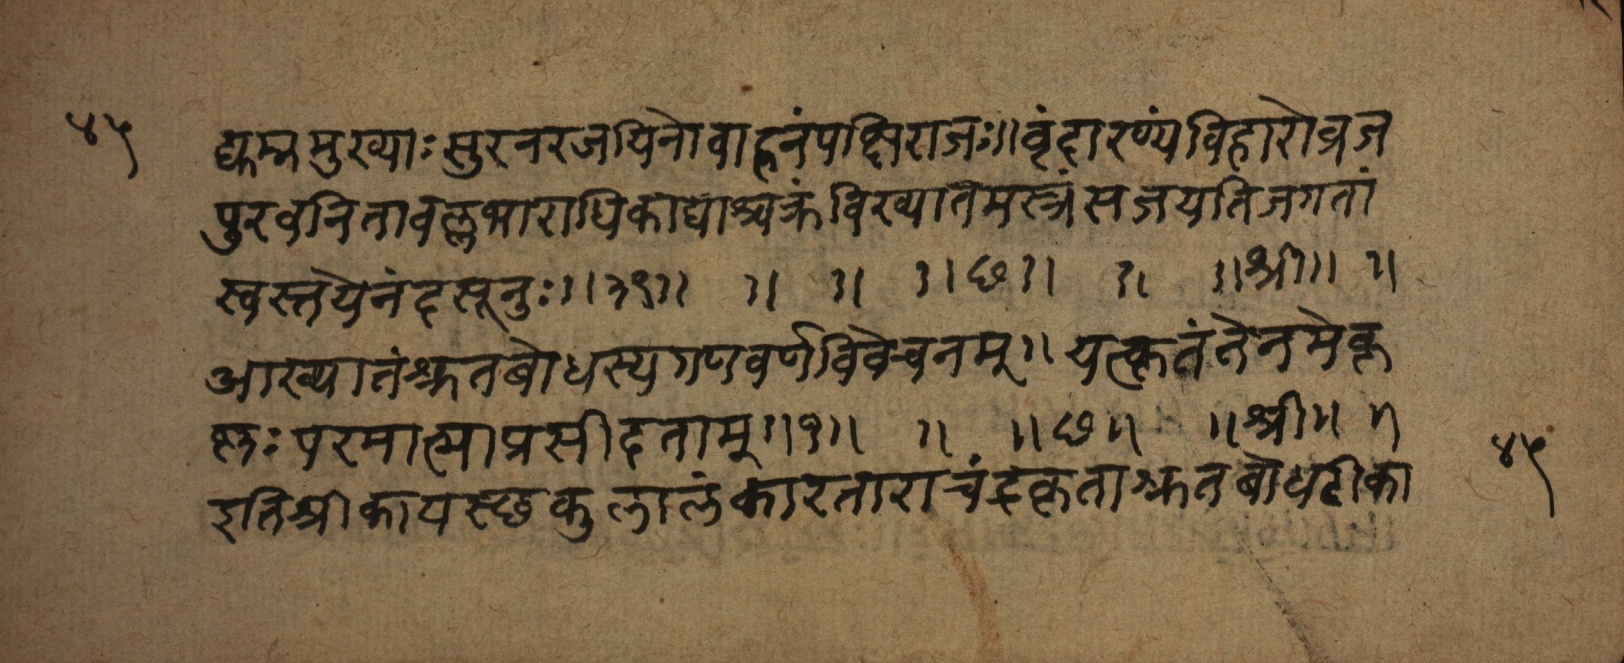 ४५
द्यम्नमुख्याः सुरनरजयिनो वाहनं पक्षिराजः ॥ वृंदारण्यं विहारो व्रज
पुरवनिता वल्लभा राधिकाद्याश्चक्रं विख्यातमस्त्रं स जयति जगतां
स्वस्तये नंदसूनुः ॥ ३९ ॥ ॥ ॥ ॥ छ ॥ ॥ ॥ श्री ॥ ॥
आख्यातं श्रुतबोधस्य गणवर्णविवेचनम् ॥ यत्कृतं तेन मे कृ
ष्णः परमात्मा प्रसीदताम् ॥ १ ॥ ॥ ॥ छ ॥ ॥ श्री ॥ ॥
इति श्रीकायस्छकुलालंकारताराचंद्रकृता श्रुतबोधटीका
४५